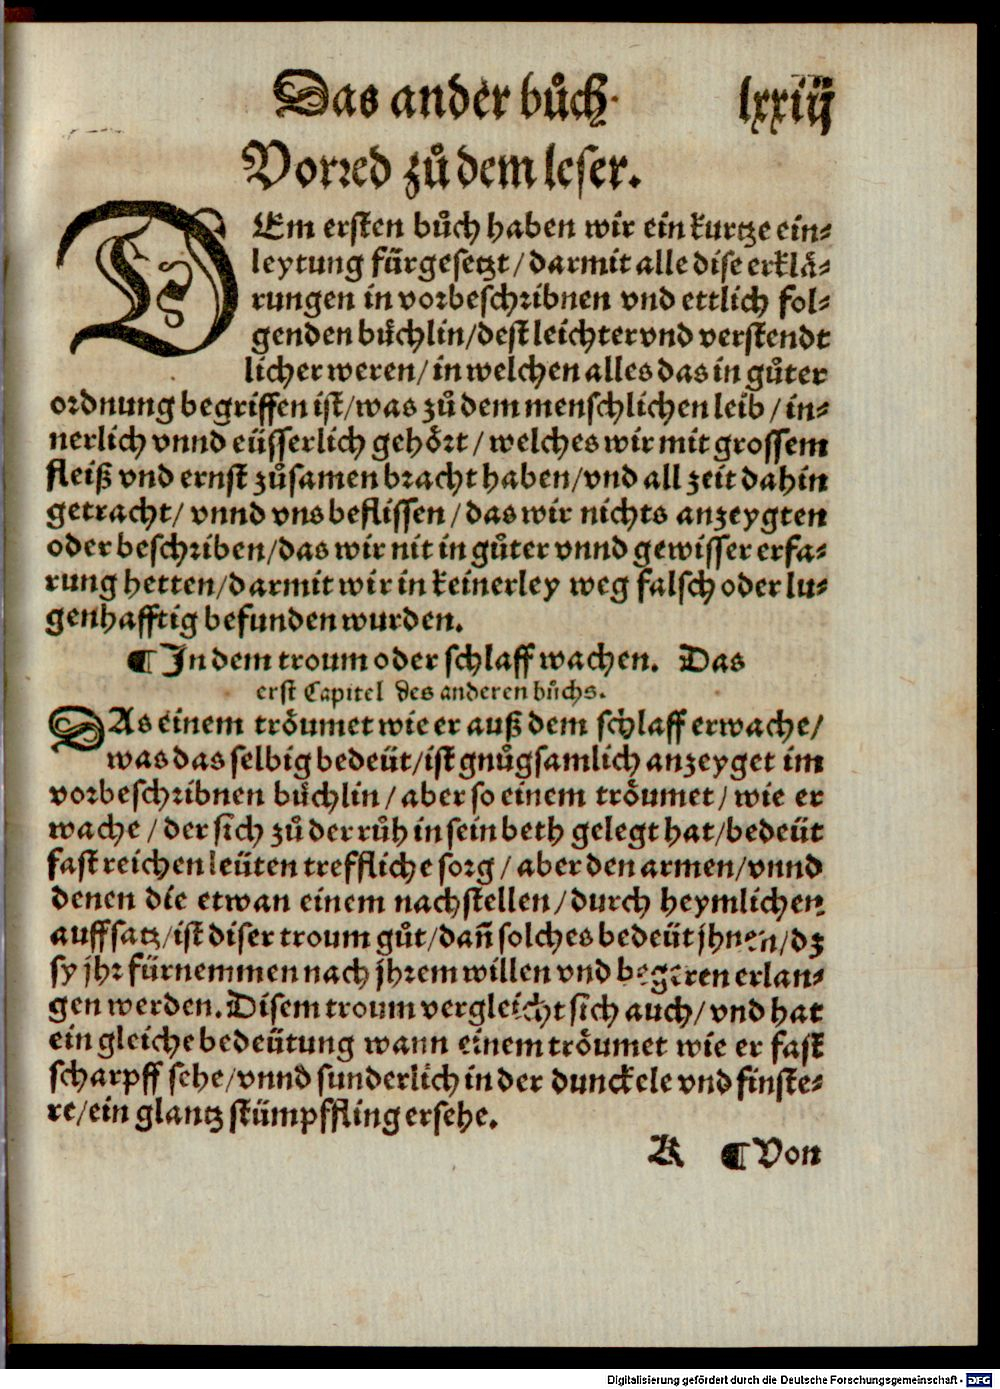 Das ander bůch· lxxiij
Vorred zů dem leser.
DEm ersten bůch haben wir ein kurtze ein⸗
leytung fürgesetzt / darmit alle dise erklä⸗
rungen in vorbeschribnen vnd ettlich fol⸗
genden bůchlin/dest leichter vnd verstendt
licher weren/ in welchen alles das in gůter
ordnung begriffen ist/was zů dem menschlichen leib / in⸗
nerlich vnnd eüsserlich gehört / welches wir mit grossem
fleiß vnd ernst zůsamen bracht haben/vnd all zeit dahin
getracht/ vnnd vns beflissen / das wir nichts anzeygten
oder beschriben/das wir nit in gůter vnnd gewisser erfa⸗
rung hetten/darmit wir in keinerley weg falsch oder lu⸗
genhafftig befunden wurden.
¶ In dem troum oder schlaff wachen. Das
erst Capitel des anderen bůchs.
DAs einem tröumet wie er auß dem schlaff erwache/
was das selbig bedeüt/ist gnůgsamlich anzeyget im
vorbeschribnen bůchlin / aber so einem tröumet/ wie er
wache / der sich zů der růh in sein beth gelegt hat/bedeüt
fast reichen leüten treffliche sorg / aber den armen/vnnd
denen die etwan einem nachstellen/durch heymlichen
auffsatz/ist diser troum gůt/dañ solches bedeüt jhnen/dz
sy jhr fürnemmen nach jhrem willen vnd begeren erlan⸗
gen werden. Disem troum vergleicht sich auch/ vnd hat
ein gleiche bedeütung wann einem tröumet wie er fast
scharpff sehe/vnnd sunderlich in der dunckele vnd finste⸗
re/ein glantz stümpffling ersehe.
K ¶ Von
Digitalisierung gefördert durch die Deutsche Forschungsgemeinschaft - DFG